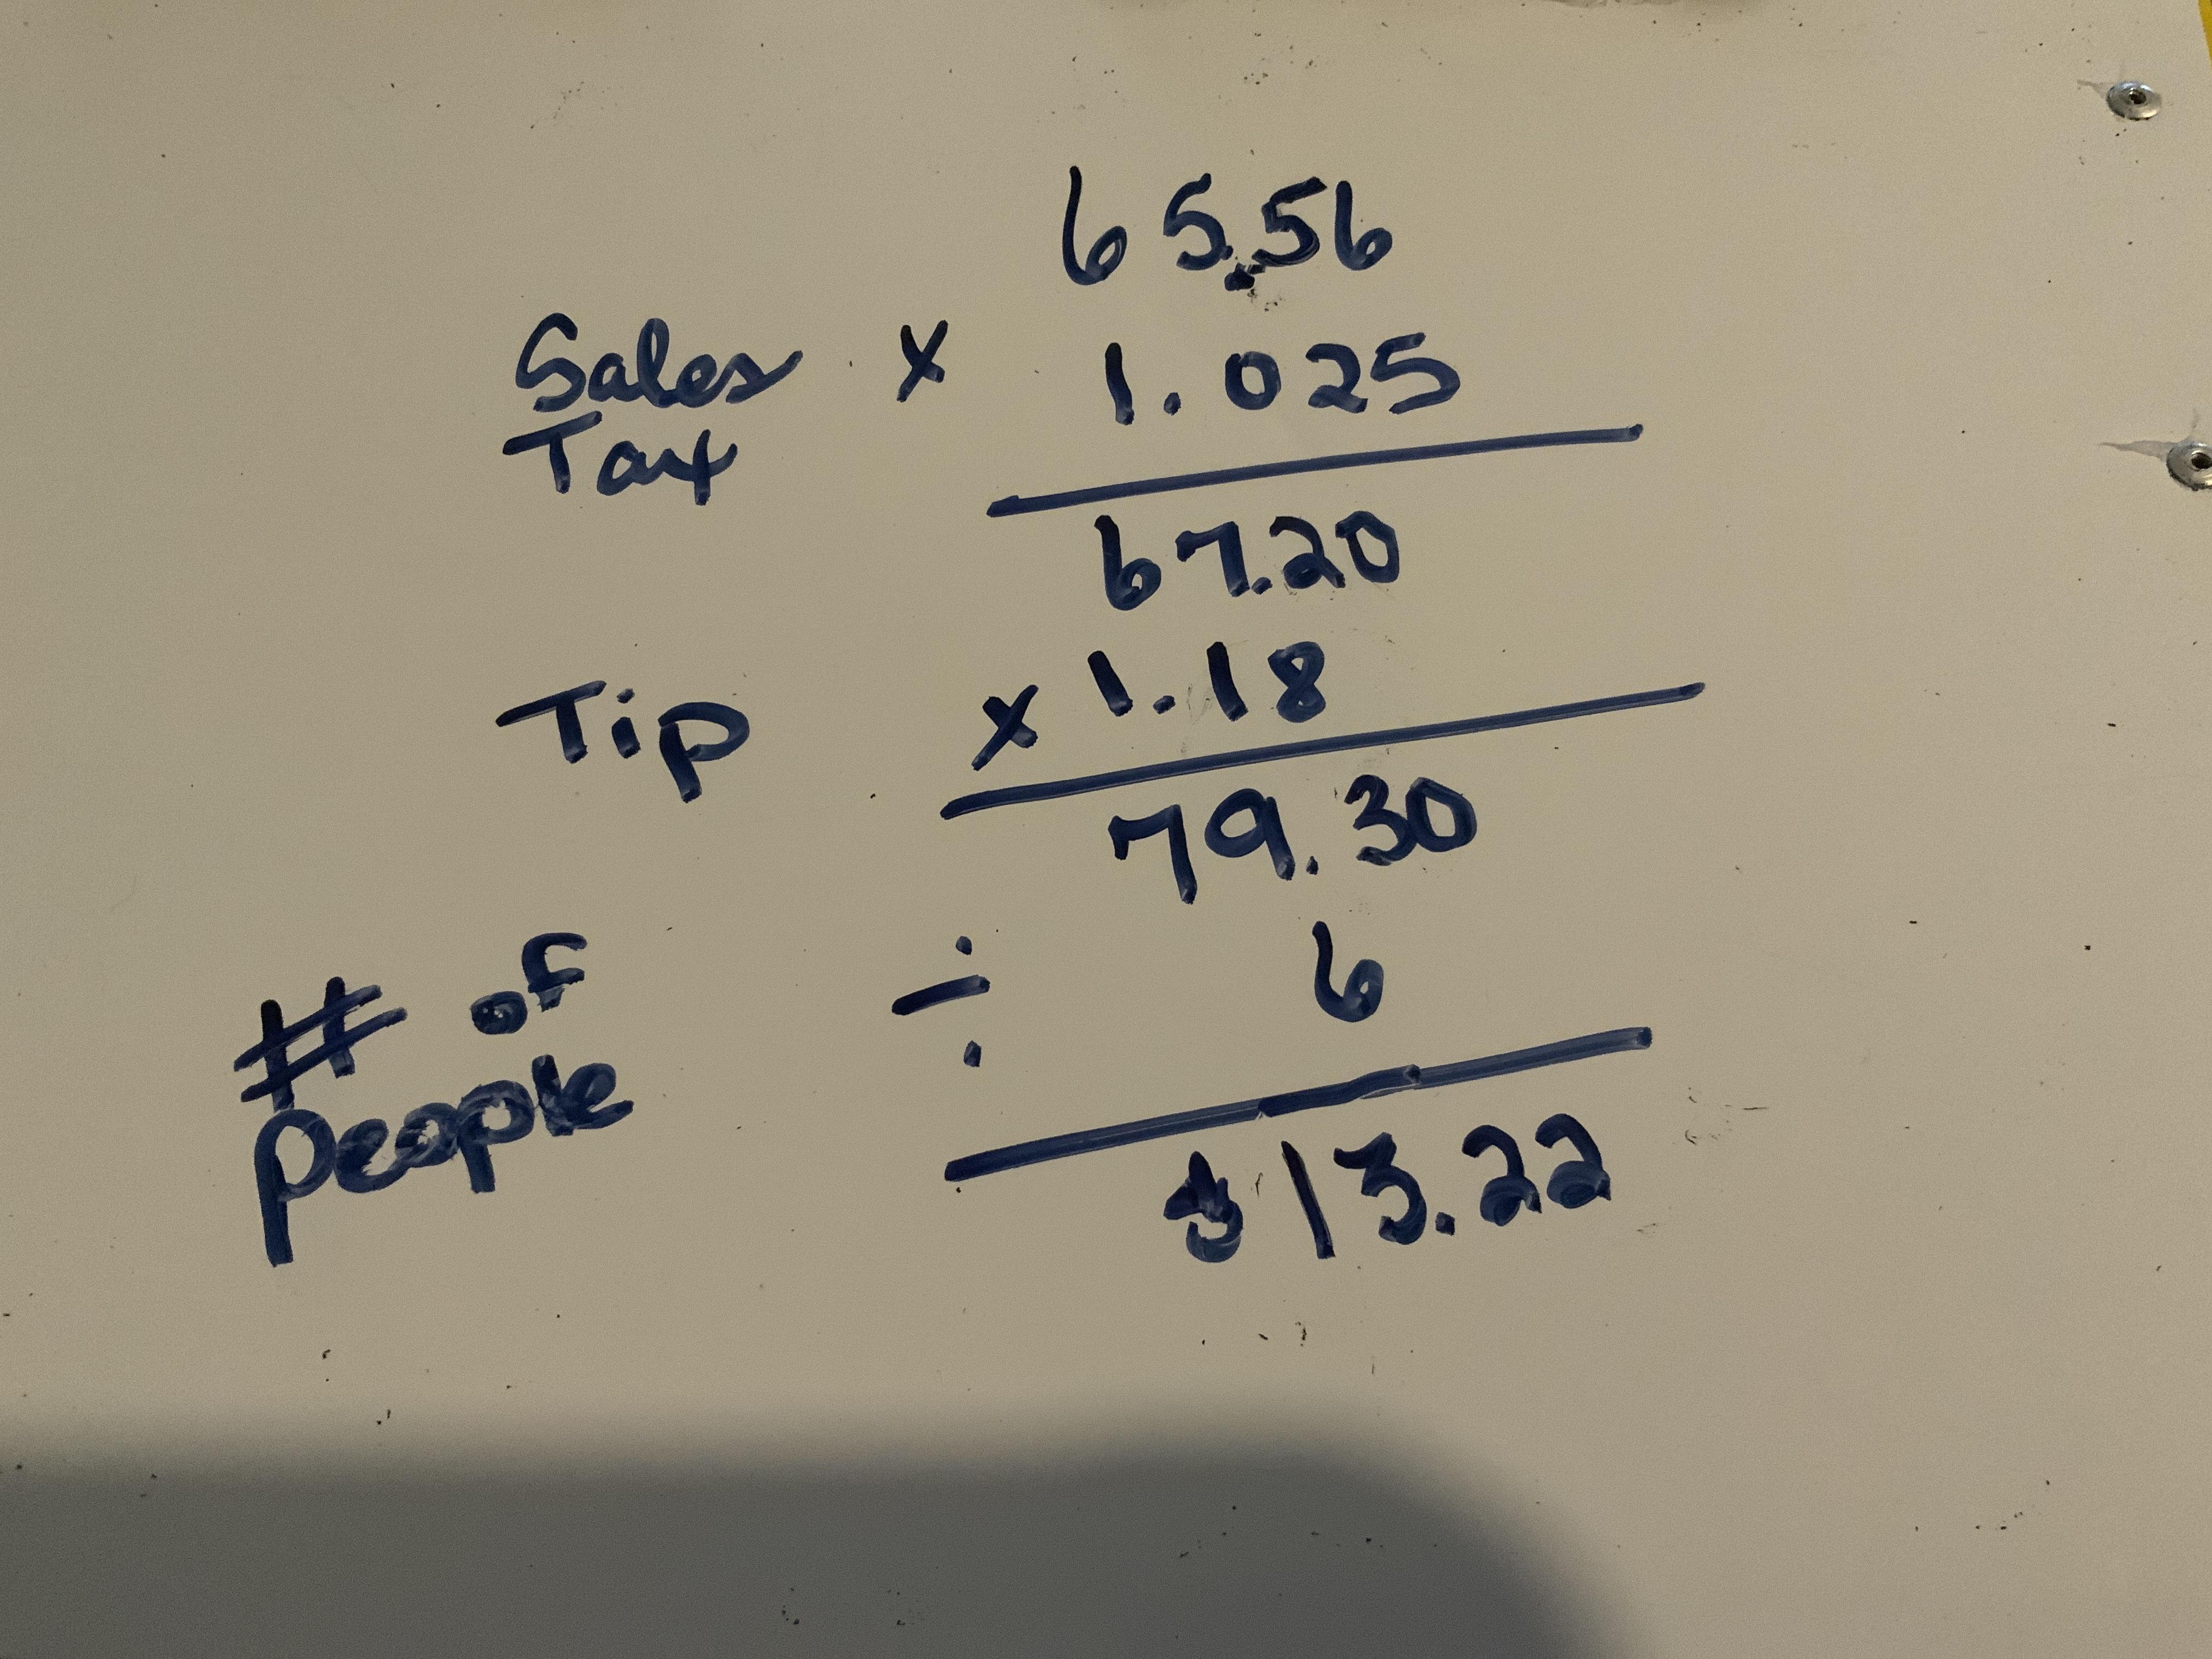 65.56
Sales x 1.025
Tax
67.20
Tip x 1.18
79.30
# of ÷ 6
people
$13.22